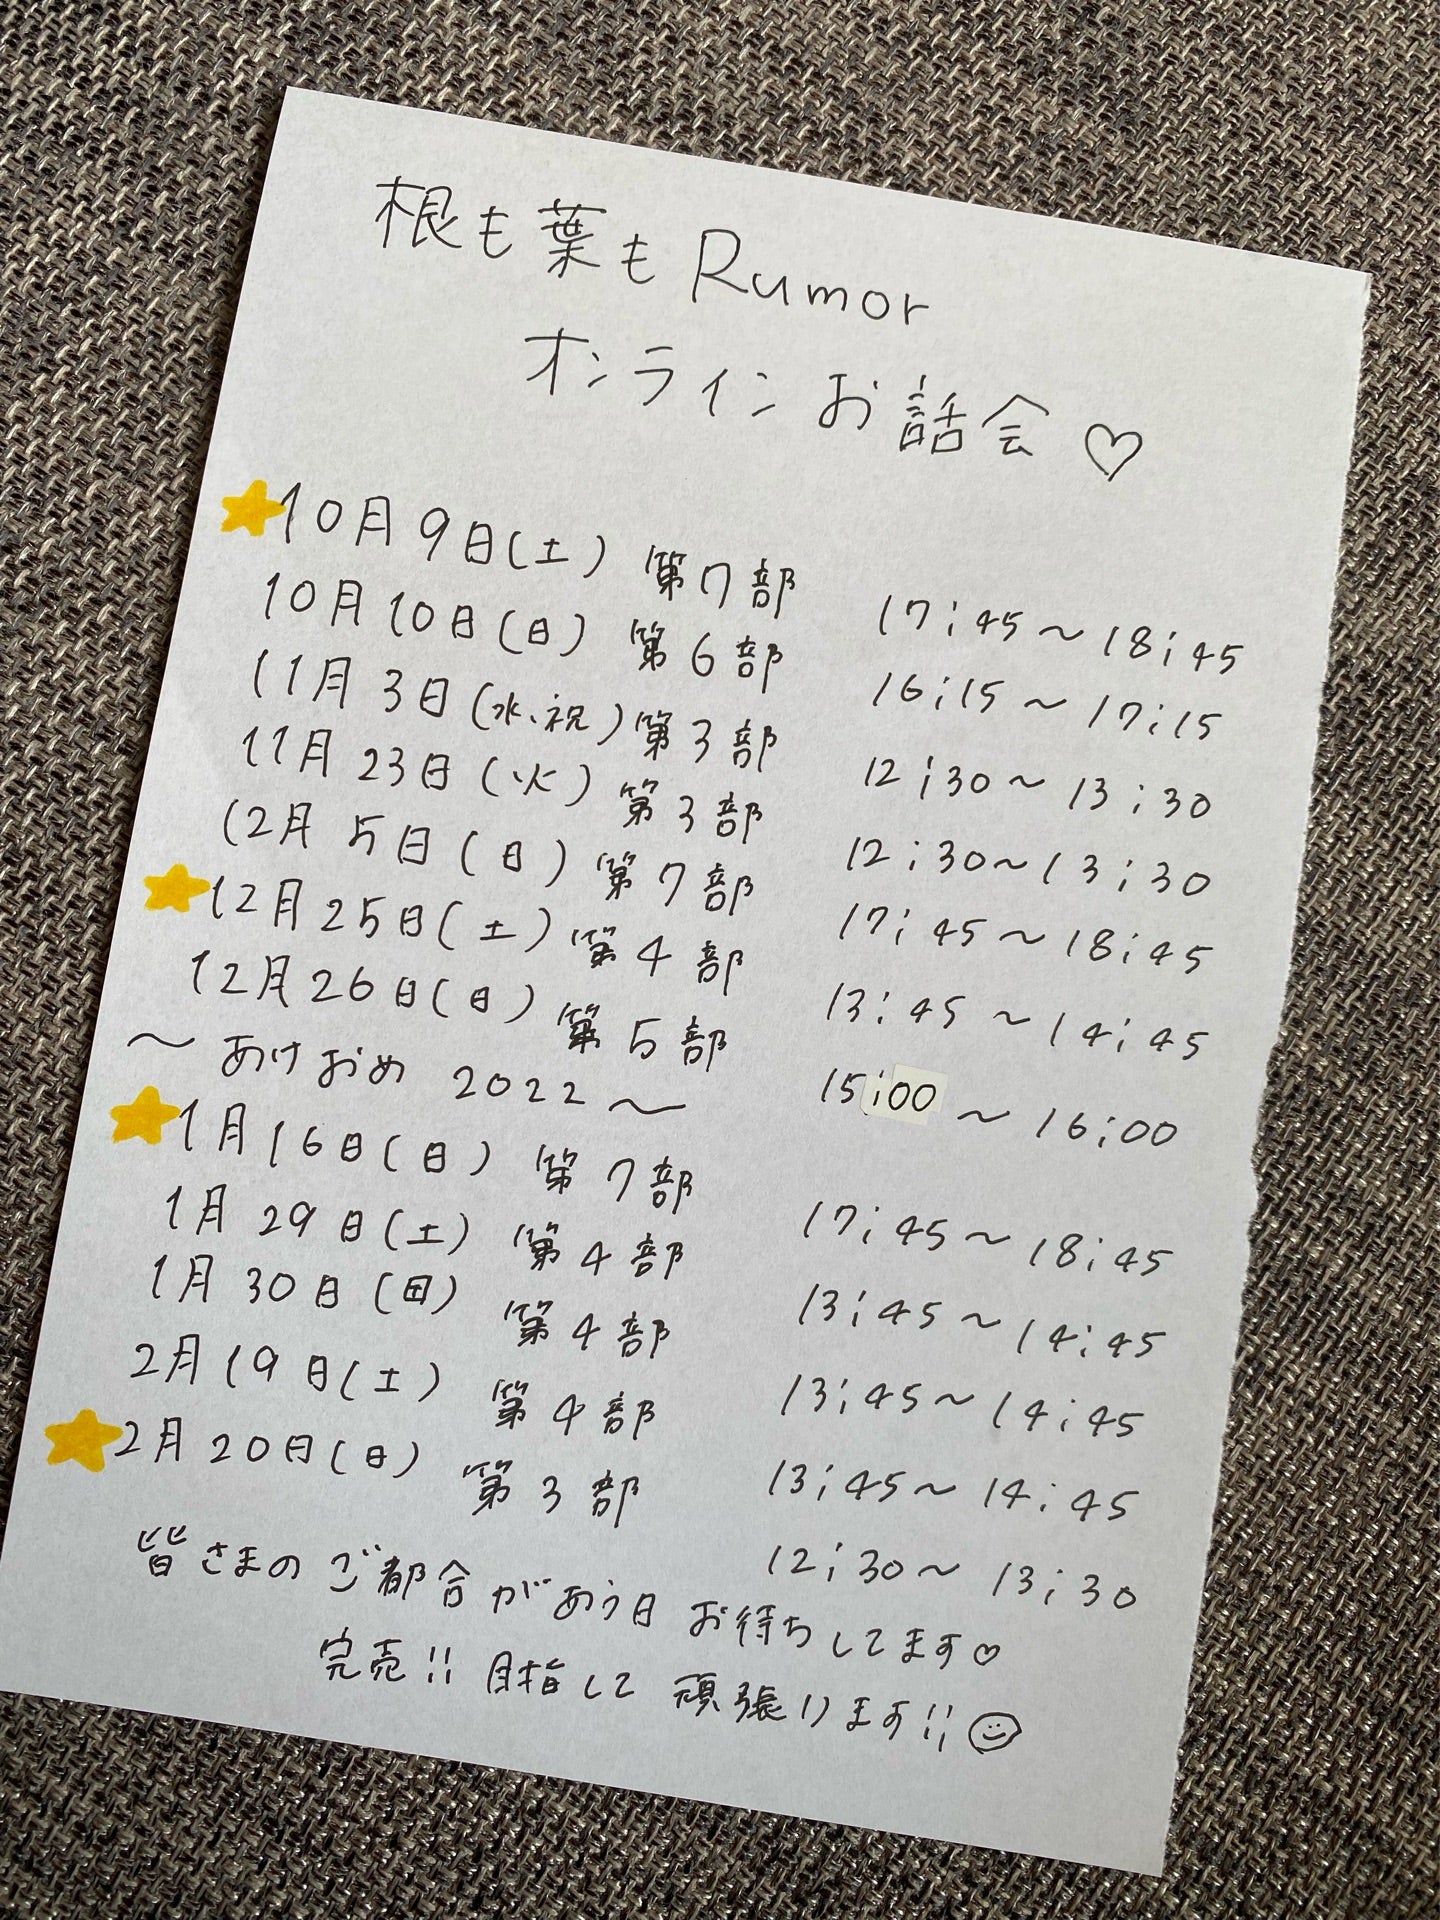 根も葉もRumor
オンラインお話会♡
10月9日(土) 第7部 17:45～18:45
10月10日(日) 第6部 16:15～17:15
11月3日(水、祝) 第3部 12:30～13:30
11月23日(火) 第3部 12:30～13:30
12月5日(日) 第7部 17:45～18:45
12月25日(土) 第4部 13:45～14:45
12月26日(日) 第5部 15:00～16:00
～あけおめ 2022～
1月16日(日) 第7部 17:45～18:45
1月29日(土) 第4部 13:45～14:45
1月30日(日) 第4部 13:45～14:45
2月19日(土) 第4部 13:45～14:45
2月20日(日) 第3部 12:30～13:30
皆さまのご都合があう日お待ちしてます♡
完売!!目指して頑張ります!!